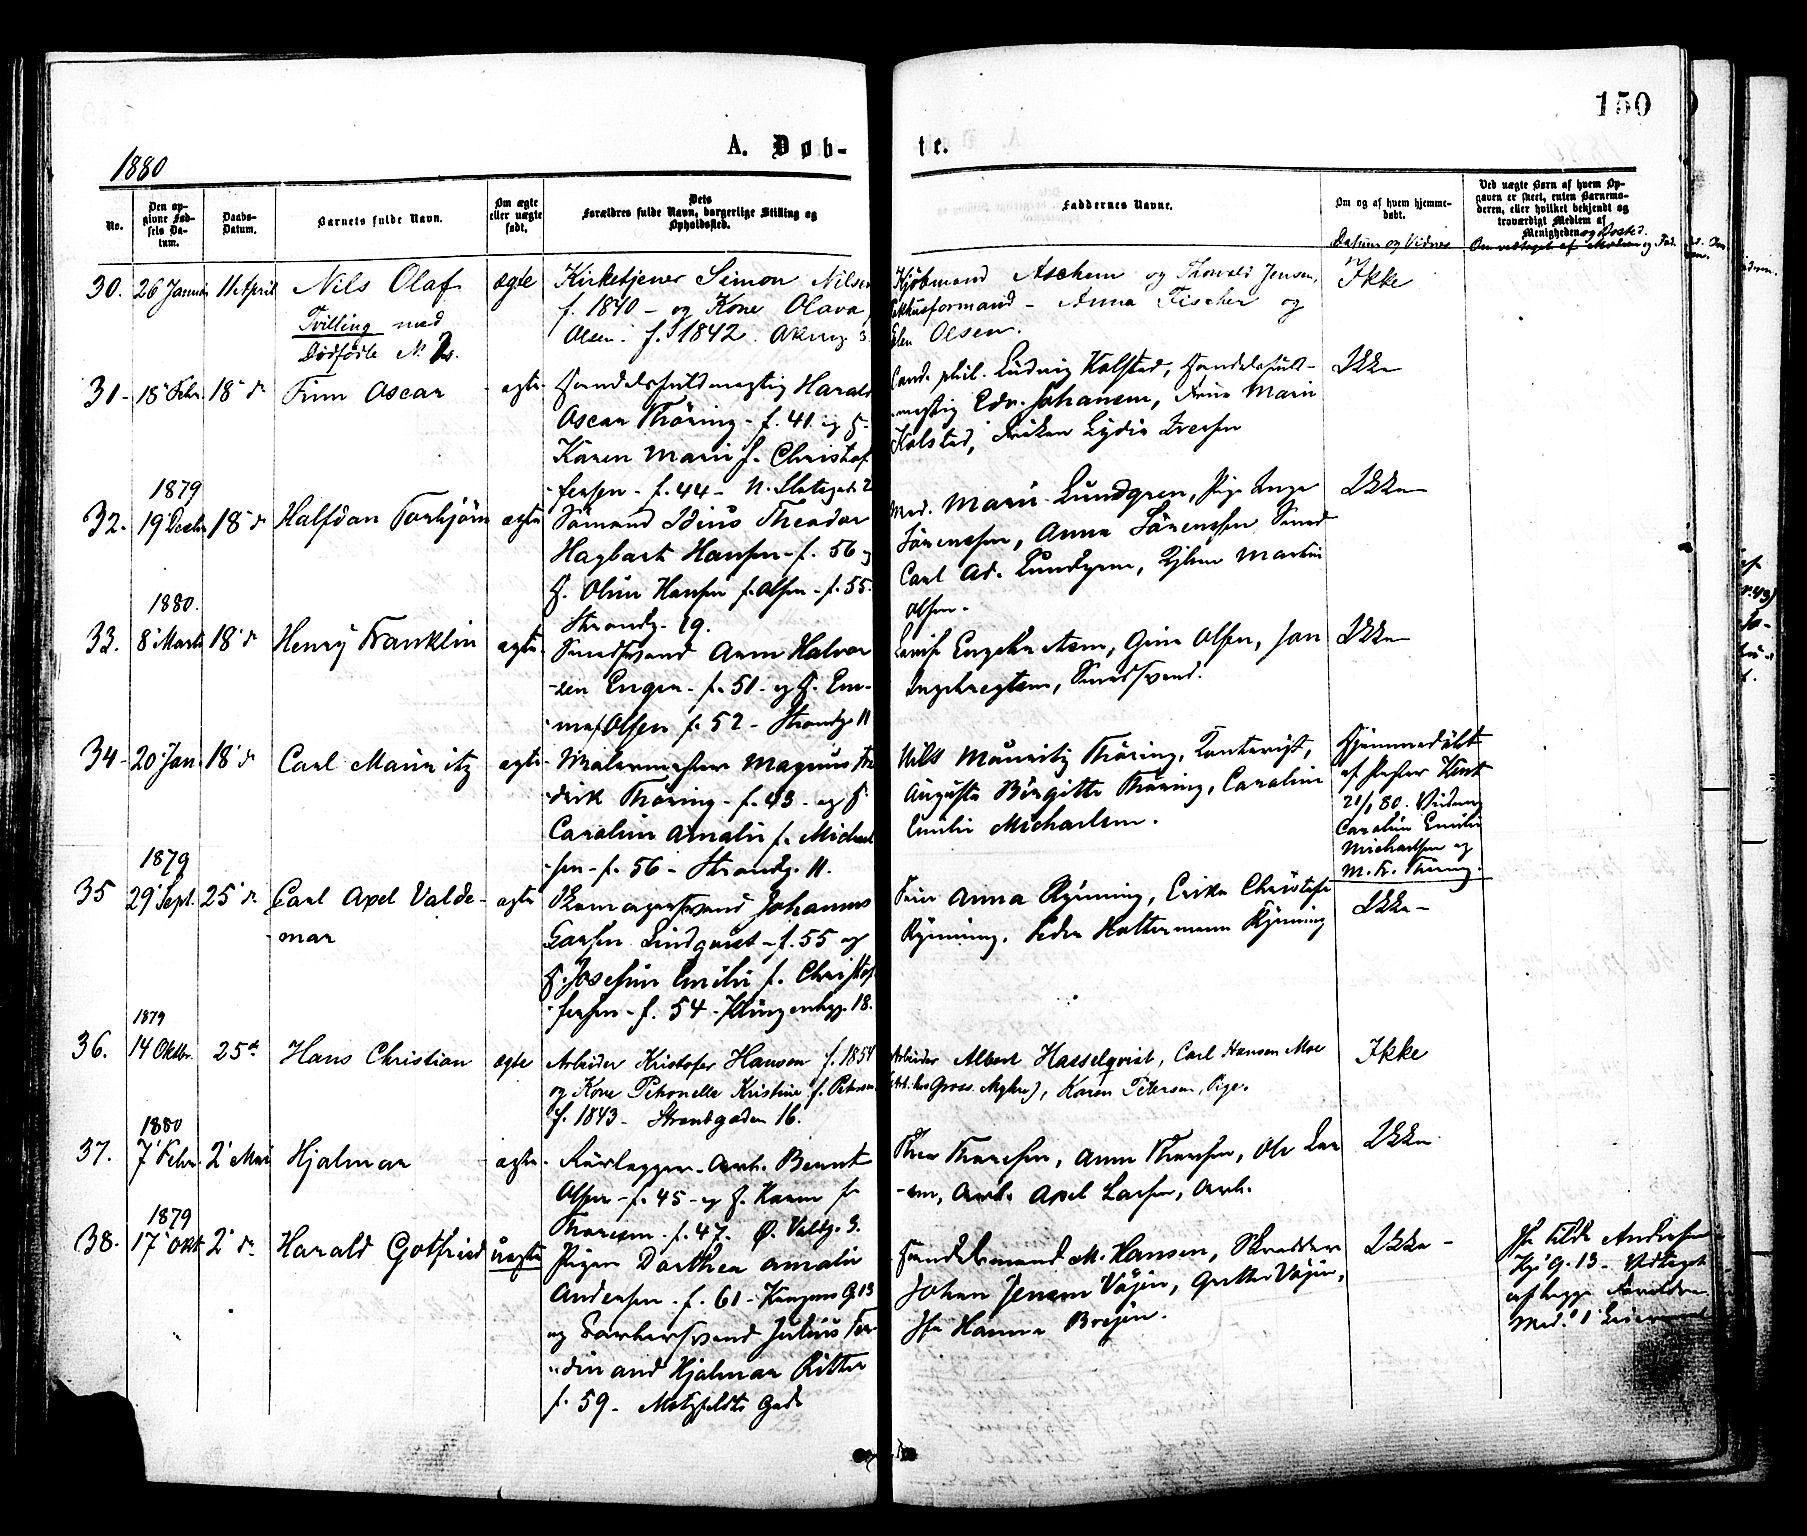 150
A. Døb-
te.
1880
No.
Den op-
givne Fød-
sels Da-
tum.
Daabs-
Datum.
Barnets fulde Navn.
Om ægte
eller uægte
født.
Dets
Forældres fulde Navn, borgerlige Stilling og
Opholdssted.
Faddernes Navne.
Om og af hvem hjemme-
døbt.
Datum og Vidner
Ved uægte Børn af hvem Op-
gaven er skeet, enten Barnemo-
deren, eller hvilket bekjendt og
troværdigt Medlem af
Menigheden og Bosted.
Om vedtaget af Moderen og Fad.
30.
26 Januar
11te April
Nils Olaf
Tvilling med
Dødfødte No 2.
ægte
Kirketjener Simon Nilsen
f. 1840 – og Kone Olava
Olsen. f. 1842.
Kjøbmand Aschem og Thorvald Jensen,
formand – Anna Fischer og
Elen Olsen.
Ikke
31-
18' Febr.
18' d
Finn Oscar
ægte-
Handelsfuldmægtig Harald
Oscar Thöring - f. 41 og H.
Karen Marie f. Christof
fersen - f. 44 - N. Slotsgade 2
Cand. phil. Ludvig Kolstad, Handelsfuld-
mægtig Edv. Johansen, Frue Marie
Kolstad, Frøken Lydia Iversen
Ikke
32.
1879
19' Decbr
18' d
Halfdan Torbjørn
ægte
Sömand Idius Theodor
Hagbart Hansen - f. 56 og
H. Oline Hansen f. Olsen - f. 55.
Strandg. 19.
Mad. Marie Lundgren, Pige Inga
Sörenssen, Anna Sörenssen Smed
Carl Ad. Lundgren, Martin
Olsen.
Ikke
33.
1880.
8' Marts
18' d
Henry Franklin
ægte
Smedsvend Aron Halvor
sen Engen - f. 51 - og H. Em-
ma f. Olsen f. 52 - Strandg. 11
Lovise Engebretsen, Gina Olsen, Jon
Ingebregtsen, Smedsvend.
Ikke
34-
20' Jan.
18' d
Carl Mauritz
ægte
Malermester Magnus Fre
derik Thöring - f. 43 - og H.
Caroline Amalie f. Michael
sen - f. 56 - Strandg. 11.
Nils Mauritz Thöring, Kontorist,
Augusta Birgitte Thöring, Caroline
Emilie Michaelsen.
Hjemmedöbt
af Pastor Kent
21/1 80. Vidner
Caroline Emilie
Michaelsen og
M. Fr. Thöring.
35
1879
29' Sept.
25' d
Carl Axel Valde-
mar
ægte
Skomagersvend Johannes
Larsen Lindquist - f. 55 og
H. Josefine Emilie f. Christof
fersen - f. 54 - Klingenbgg. 18.
Frue Anna Rynning, Erika Christofa
Rynning, Peder Holtermann Rynning
Ikke -
36.
1879
14 Oktbr.
25 d
Hans Christian
ægte
Arbeider Kristofer Hansen f. 1854
og Kone Petronelle Kristine f. Petersen
f. 1843 - Strandgaden 16.
Arbeider Albert Hasselqvist, Carl Hansen Moe
(Arb. hos Gross. Myhre), Karen Petersen, Pige.
Ikke
37.
1880
7' Febr.
2' Mai
Hjalmar
ægte.
Rörlægger-Arb. Bernt
Olsen - f. 45 - og H. Karen f.
Thoresen. f. 47. Ø. Voldg. 3.
Thea Thoresen, Anne Thoresen, Ole Lar
sen, Arb. Axel Larsen, Arb.
Ikke
38.
1879
17' Okt
2' d
Harald Gotfried
uægte
Pigen Dorthea Amalie
Andersen - f. 61 - Kongens G 13
og Garversvend Julius Fer
dinand Hjalmar Ritter
f. 59 - Motzfeldts Gade
Handelsmand M. Hansen, Skrædder
Johan Jensen Vöjen, Grethe Vöjen,
Jfr Hanna Brejen.
Ikke -
Jfr Tilda Andersen
Kgs G. 13 - Vedtaget
af begge Forældre
Med.